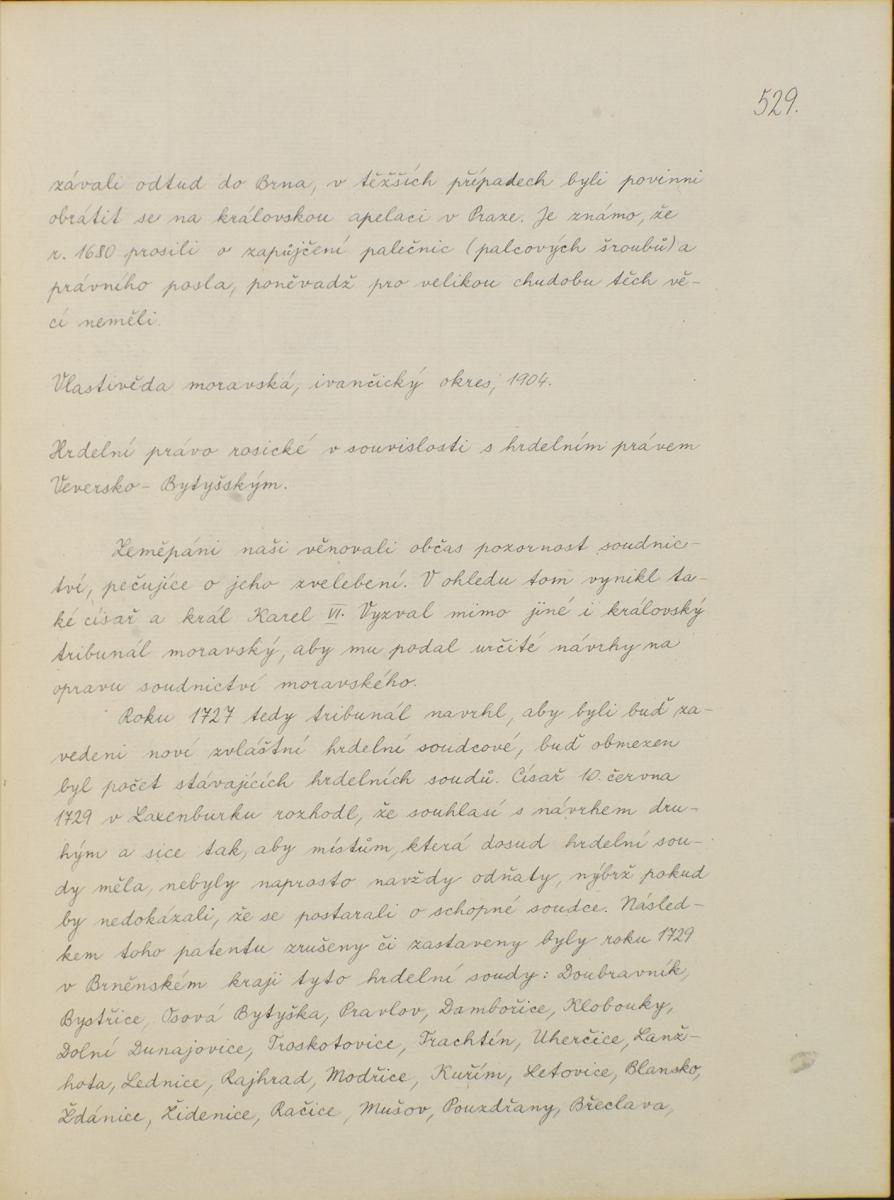 529.
závali odtud do Brna, v těžších případech byli povinni
obrátit se na královskou apelaci v Praze. Je známo, že
r. 1680 prosili o zapůjčení palečnic (palcových šroubů) a
právního posla, poněvadž pro velikou chudobu těch vě-
cí neměli.
Vlastivěda moravská, ivančický okres, 1904.
Hrdelní právo rosické v souvislosti s hrdelním právem
Veversko - Bytyšským.
Zeměpáni naši věnovali občas pozornost soudnic-
tví, pečujíce o jeho zvelebení. V ohledu tom vynikl ta-
ké císař a král Karel VI. Vyzval mimo jiné i královský
tribunál moravský, aby mu podal určité návrhy na
opravu soudnictví moravského.
Roku 1727 tedy tribunál navrhl, aby byli buď za-
vedeni noví zvláštní hrdelní soudcové, buď obmezen
byl počet stávajících hrdelních soudů. Císař 10. června
1729 v Laxenburku rozhodl, že souhlasí s návrhem dru-
hým a sice tak, aby místům, která dosud hrdelní sou-
dy měla, nebyly naprosto navždy odňaty, nýbrž pokud
by nedokázali, že se postarali o schopné soudce. Násled-
kem toho patentu zrušeny či zastaveny byly roku 1729
v Brněnském kraji tyto hrdelní soudy: Doubravník,
Bystřice, Osová Bytyška, Pravlov, Dambořice, Klobouky,
Dolní Dunajovice, Troskotovice, Trachtín, Uherčice, Lanž-
hota, Lednice, Rajhrad, Modřice, Kuřím, Letovice, Blansko,
Ždánice, Židenice, Račice, Mušov, Pouzdřany, Břeclava,